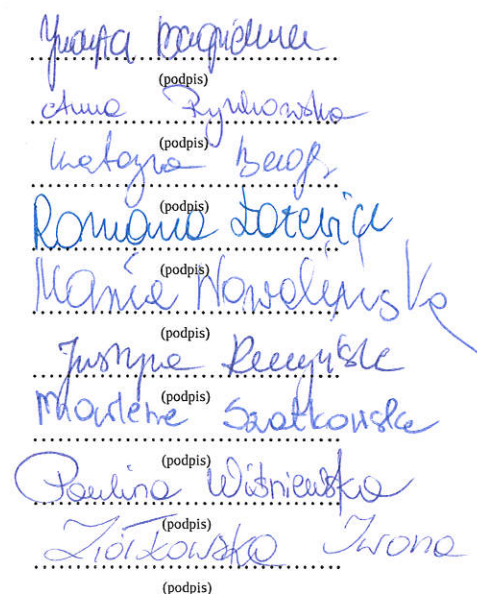 (podpis)
Anna Rynkowska
(podpis)
Katarzyna
(podpis)
Romana
(podpis)
Maria Nowalińska
(podpis)
Justyna
(podpis)
Marlena Szatkowska
(podpis)
Paulina Wiśniewska
(podpis)
Ziółkowska Iwona
(podpis)